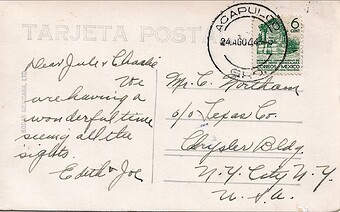 TARJETA POSTAL
ACAPULCO
24.AGO.44
GRO.
6
CORREOS MEXICO
Dear Jule & Charlie
We
are having a
wonderful time
seeing all the
sights.
Edith & Joe
Mr. C. Northam
c/o Texas Co.
Chrysler Bldg.
N.Y. City N.Y.
U.S.A.